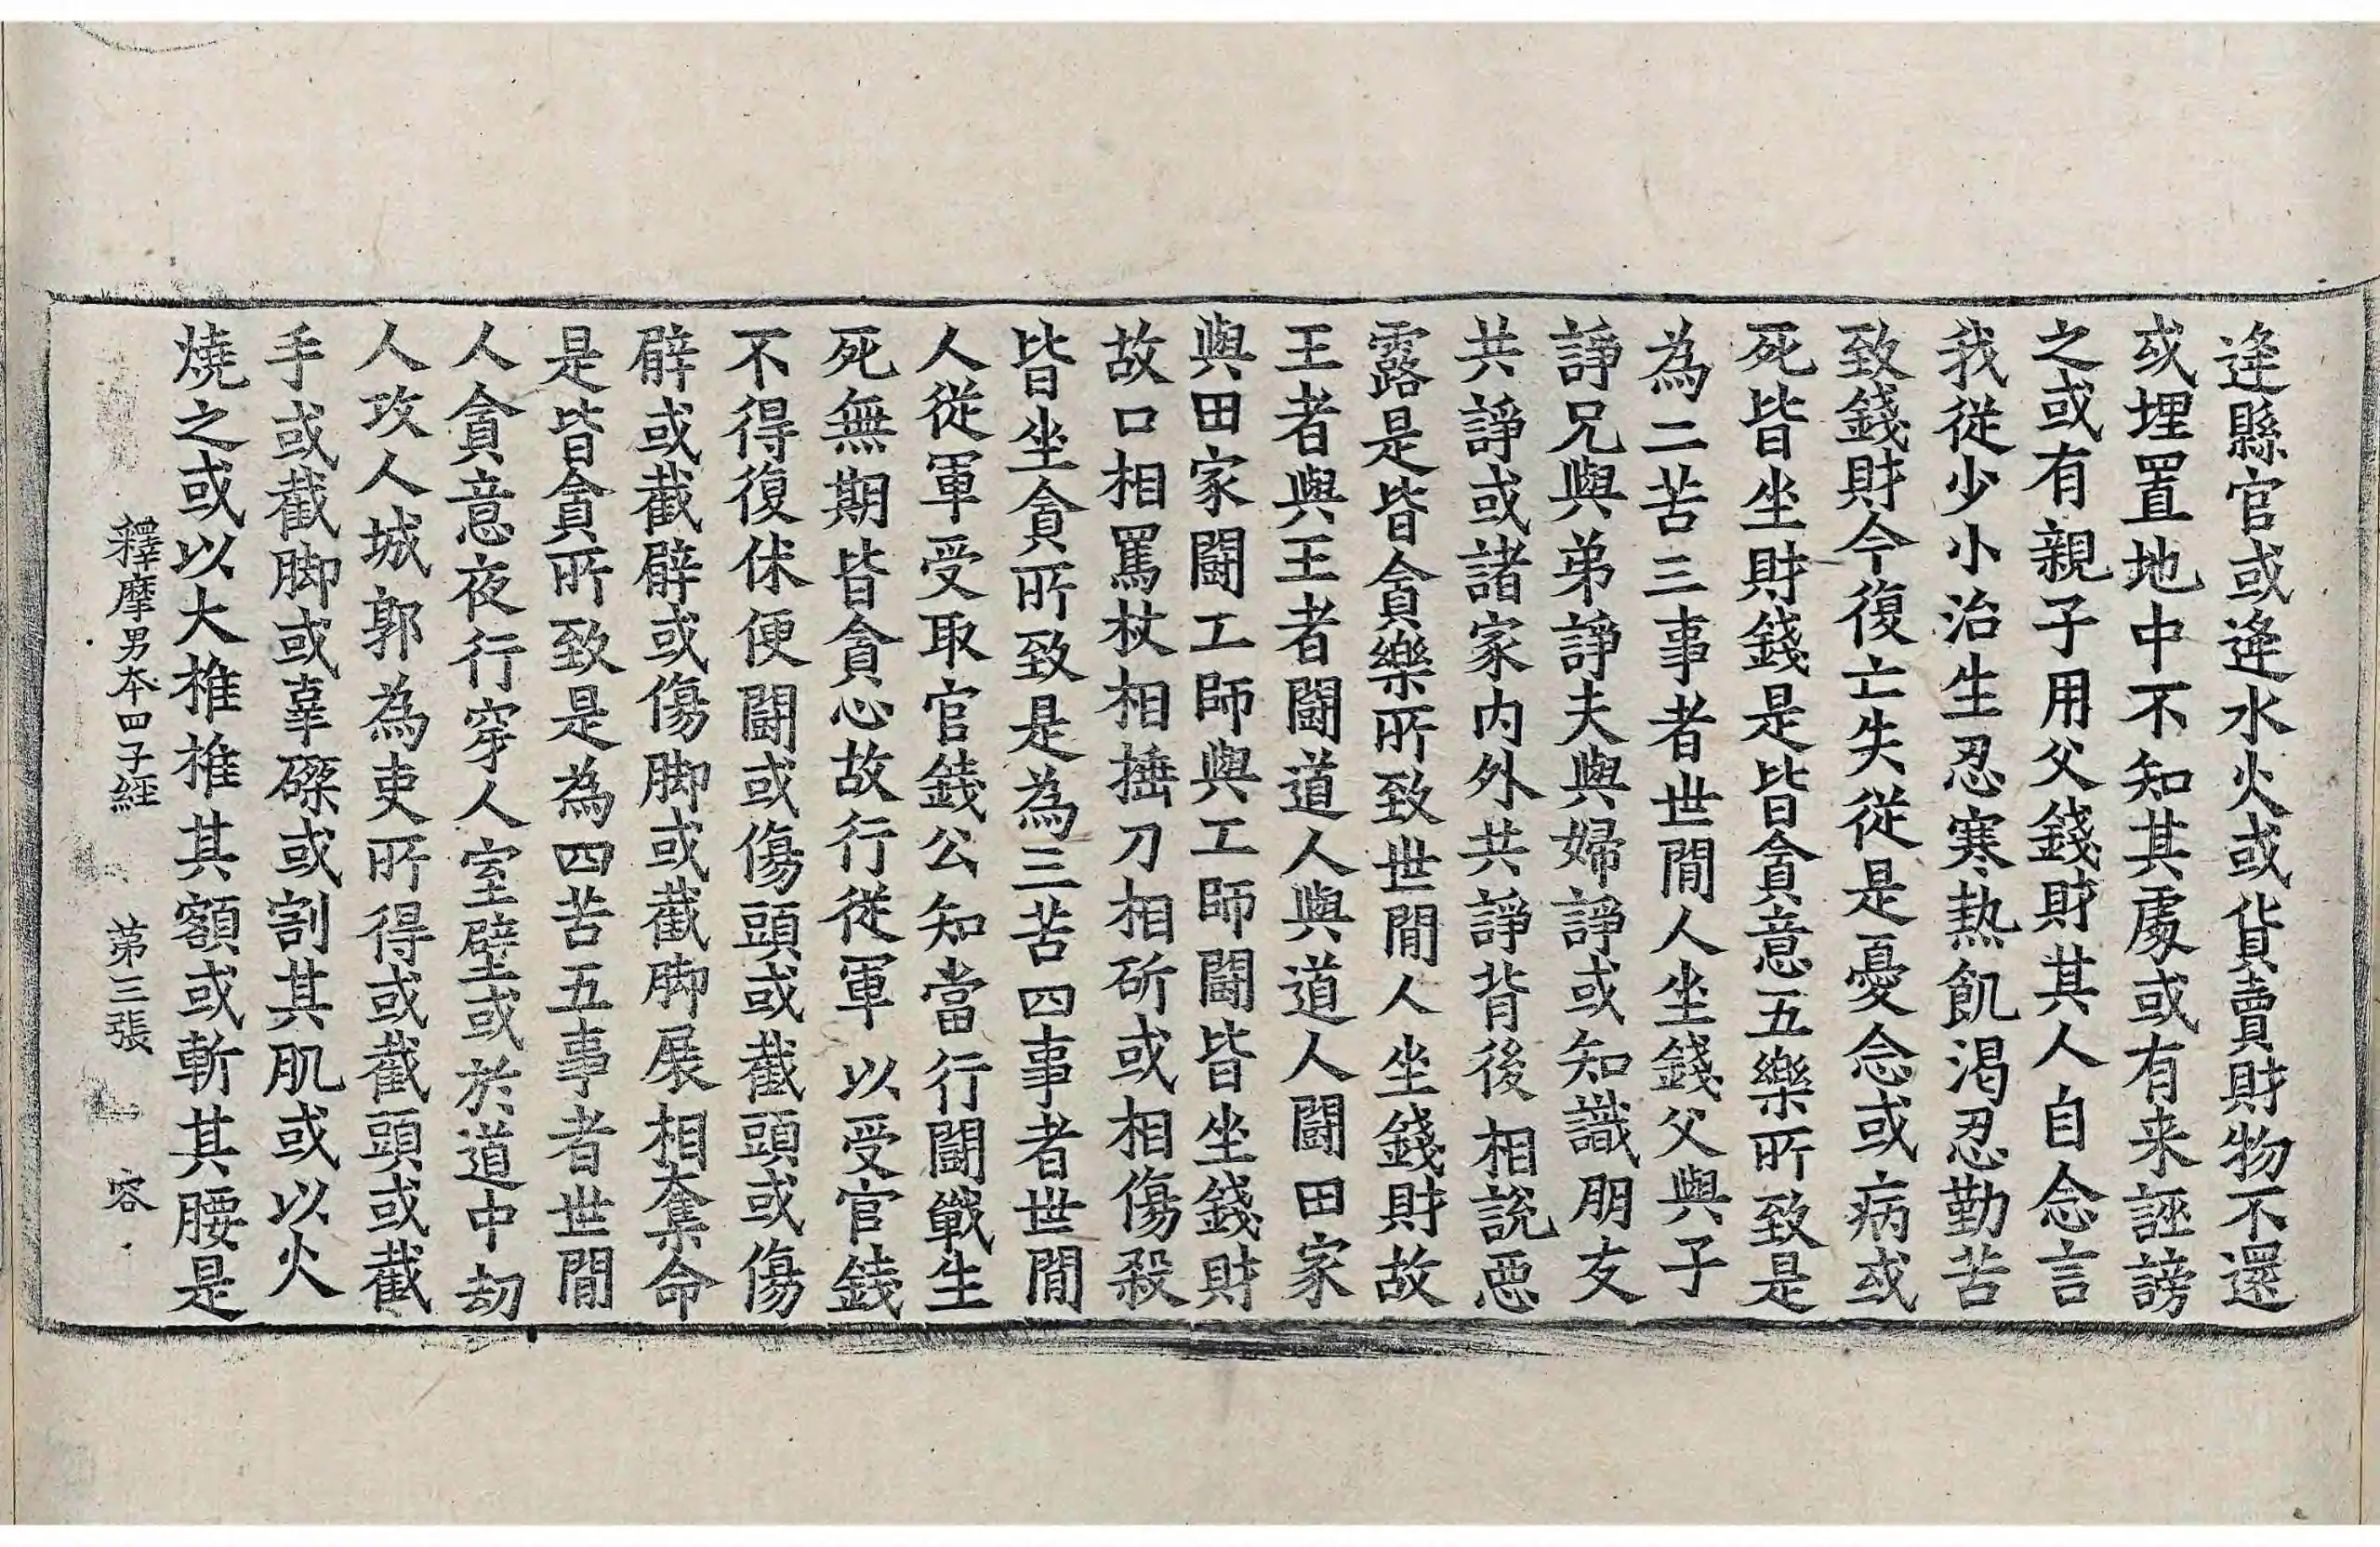 逢縣官或逢水火或貨賣財物不還
或埋置地中不知其處或有来誣謗
之或有親子用父錢財其人自念言
我從少小治生忍寒熱飢渴忍勤苦
致錢財今復亡失從是憂念或病或
死皆坐財錢是皆貪意五樂所致是
為二苦三事者世閒人坐錢父與子
諍兄與弟諍夫與婦諍或知識朋友
共諍或諸家内外共諍背後相説惡
露是皆貪樂所致世閒人坐錢財故
王者與王者鬪道人與道人鬪田家
與田家鬪工師與工師鬪皆坐錢財
故口相罵杖相捶刀相斫或相傷殺
皆坐貪所致是為三苦四事者世閒
人從軍受取官錢公知當行鬪戰生
死無期皆貪心故行從軍以受官錢
不得復休便鬪或傷頭或截頭或傷
臂或截臂或傷脚或截脚展相奪命
是皆貪所致是為四苦五事者世閒
人貪意夜行穿人室壁或於道中劫
人攻人城郭為吏所得或截頭或截
手或截脚或辜磔或割其肌或以火
燒之或以大椎椎其額或斬其腰是
釋摩男本四子經 第三張 容